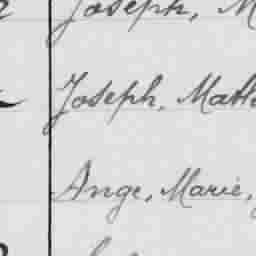 Joseph, M
Joseph, Math
Ange, Marie,